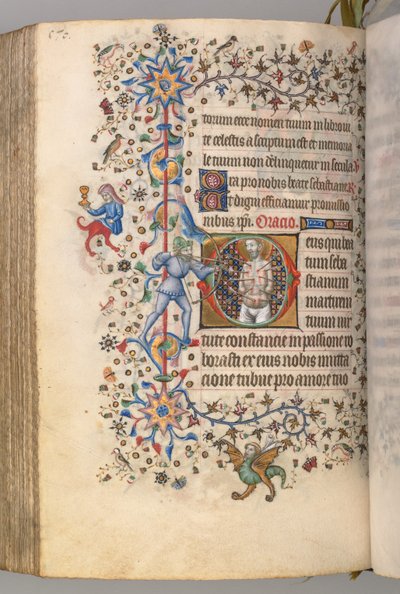 torum ecce nomen tuum in libro vi
te celestis ascriptum est et memoria
le tuum non derelinquetur in secula
Ora pro nobis beate sebastiane
Ut digni efficiamur promissio
nibus xpi. Oracio.
Deus qui bea
tum seba
stianum
martirem
tuum vir
tute constancie in passione ro
borasti ex eius nobis imita
cione tribue pro amore tuo